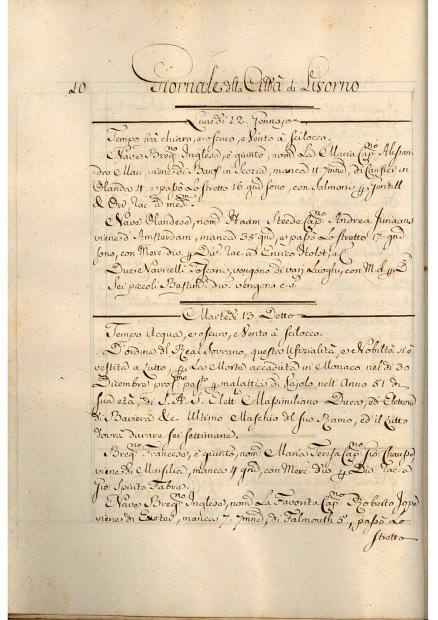 10 Giornale della Città di Livorno
Lunedì 12. Gennajo
Tempo frà chiaro, e oscuro, e Vento à Scilocco.
Nave Breg.no Inglese, è giunto, nom.o La Maria Cap.no Alessan-
dro Man, viene di Banf in Scozia, manca 11 7mne, di
Olanda 4, e passò Lo Stretto 16 giorni sono, con Salmone
Nave Olandese, nom.o Cap.no Andrea
viene d'Amsterdam, manca 35 gni, e passò Lo Stretto 17 gni
sono, con Merc. div.e Enrico
Due Navicelli Toscani, vengono di varj Luoghi, con M. d.
Sei piccoli Bastim.ti div. vengono c.s.
Martedì 13. Detto
Tempo Acqua, e oscuro, e Vento à Scilocco.
D'ordine del Real Sovrano, questa Ufizialità, e Nobiltà si è
vestita à Lutto p La Morte accaduta in Monaco nel dì 30
Dicembre pross.o pass.o p malattia di Vajolo nell'Anno 51. di
sua età, di S. A. S. Elett.le Massimiliano Duca, ed Elettore
di Baviera &c. Ultimo Maschio del suo Ramo, ed il Lutto
dovrà durare sei settimane.
Breg.no Francese, è giunto, nom.o Maria Teresa Cap.no Gio:
viene di Marsilia, manca 4 gni, con Merc. div.e
Gio: Spirito Fabre.
Nave Breg.no Inglese, nom.o La Favorita Cap.no Roberto
viene di Exeter, manca 7. 7mne, di Falmouth 5, passò Lo
Stretto